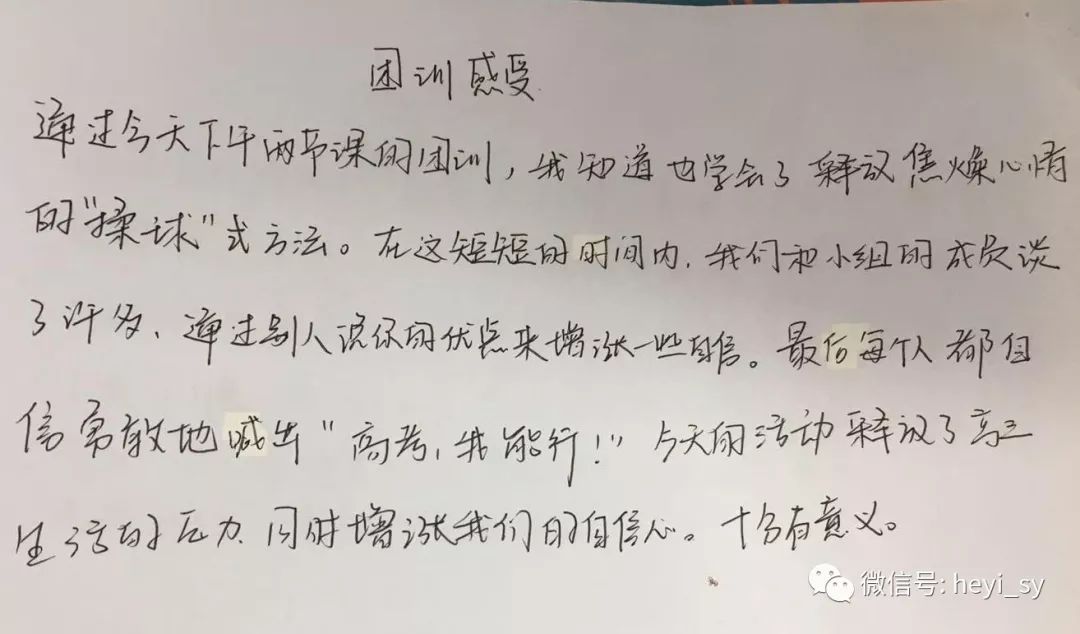 团训感受
通过今天下午两节课的团训，我知道也学会了释放焦燥心情
的"揉球"式方法。在这短短的时间内，我们和小组的成员谈
了许多、通过别人说你的优点来增涨一些自信。最后每个人都自
信勇敢地喊出"高考，我能行！"今天的活动释放了高三
生活的压力 同时增涨我们的自信心。十分有意义。
微信号: heyi_sy